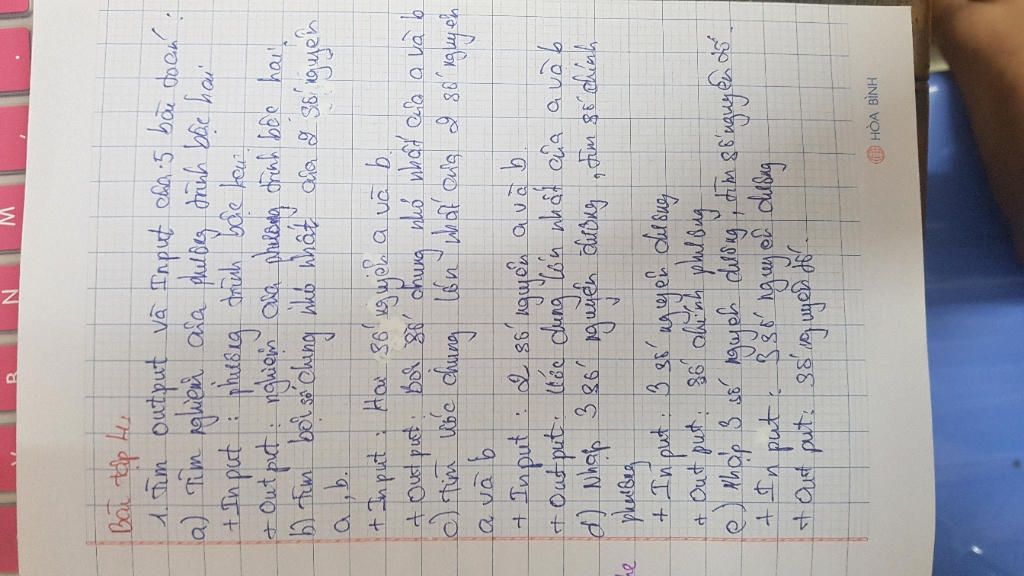 Bài tập 4:
1. Tìm output và Input của 5 bài toán:
a) Tìm nghiệm của phương trình bậc hai.
+ Input: phương trình bậc hai.
+ Output: nghiệm của phương trình bậc hai.
b) Tìm bội số chung nhỏ nhất của 2 số nguyên
a, b.
+ Input: Hai số nguyên a và b.
+ Output: Bội số chung nhỏ nhất của a và b
c) Tìm ước chung lớn nhất của 2 số nguyên
a và b
+ Input: 2 số nguyên a và b.
+ Output: Ước chung lớn nhất của a và b
d) Nhập 3 số nguyên dương, tìm số chính
phương
+ Input: 3 số nguyên dương
+ Output: số chính phương
e) Nhập 3 số nguyên dương, tìm số nguyên tố.
+ Input: 3 số nguyên dương
+ Output: số nguyên tố.
HÒA BÌNH
B
N
M
,
.